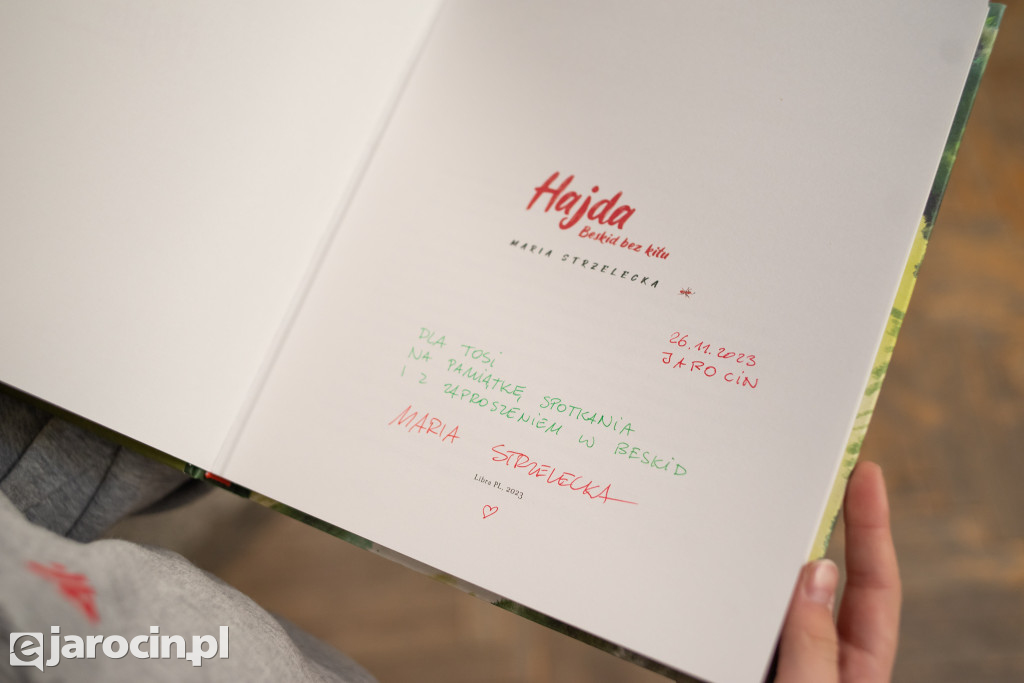 Hajda
Beskid bez kitu
MARIA STRZELECKA
26.11.2023
JAROCIN
DLA TOSI
NA PAMIĄTKĘ SPOTKANIA
I Z ZAPROSZENIEM W BESKID
MARIA STRZELECKA
Libra PL, 2023
ejarocin.pl